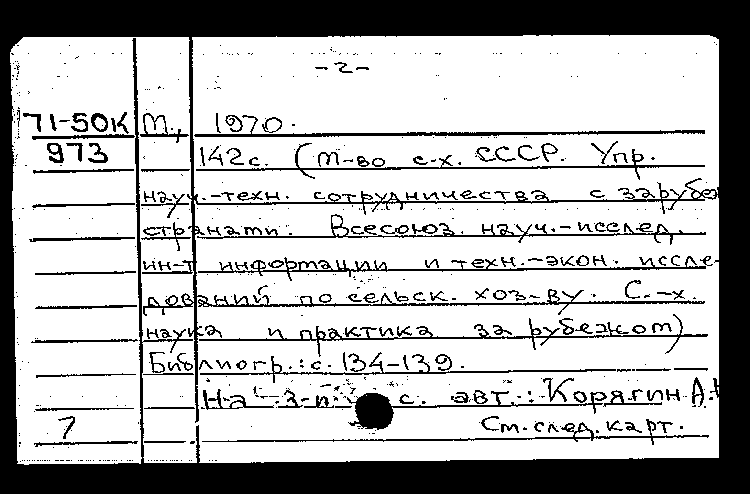 -2-
71-50К М., 1970.
973 142с. (М-во с-х. СССР. Упр.
науч.-техн. сотрудничества с зарубеж
странами. Всесоюз. науч.-исслед.
ин-т информации и техн.-экон. иссле-
дований по сельск. хоз-ву. С.-х.
наука и практика за рубежом)
Библиогр.: с. 134-139.
На 3-й с. авт.: Корягин А.
7 См. след. карт.